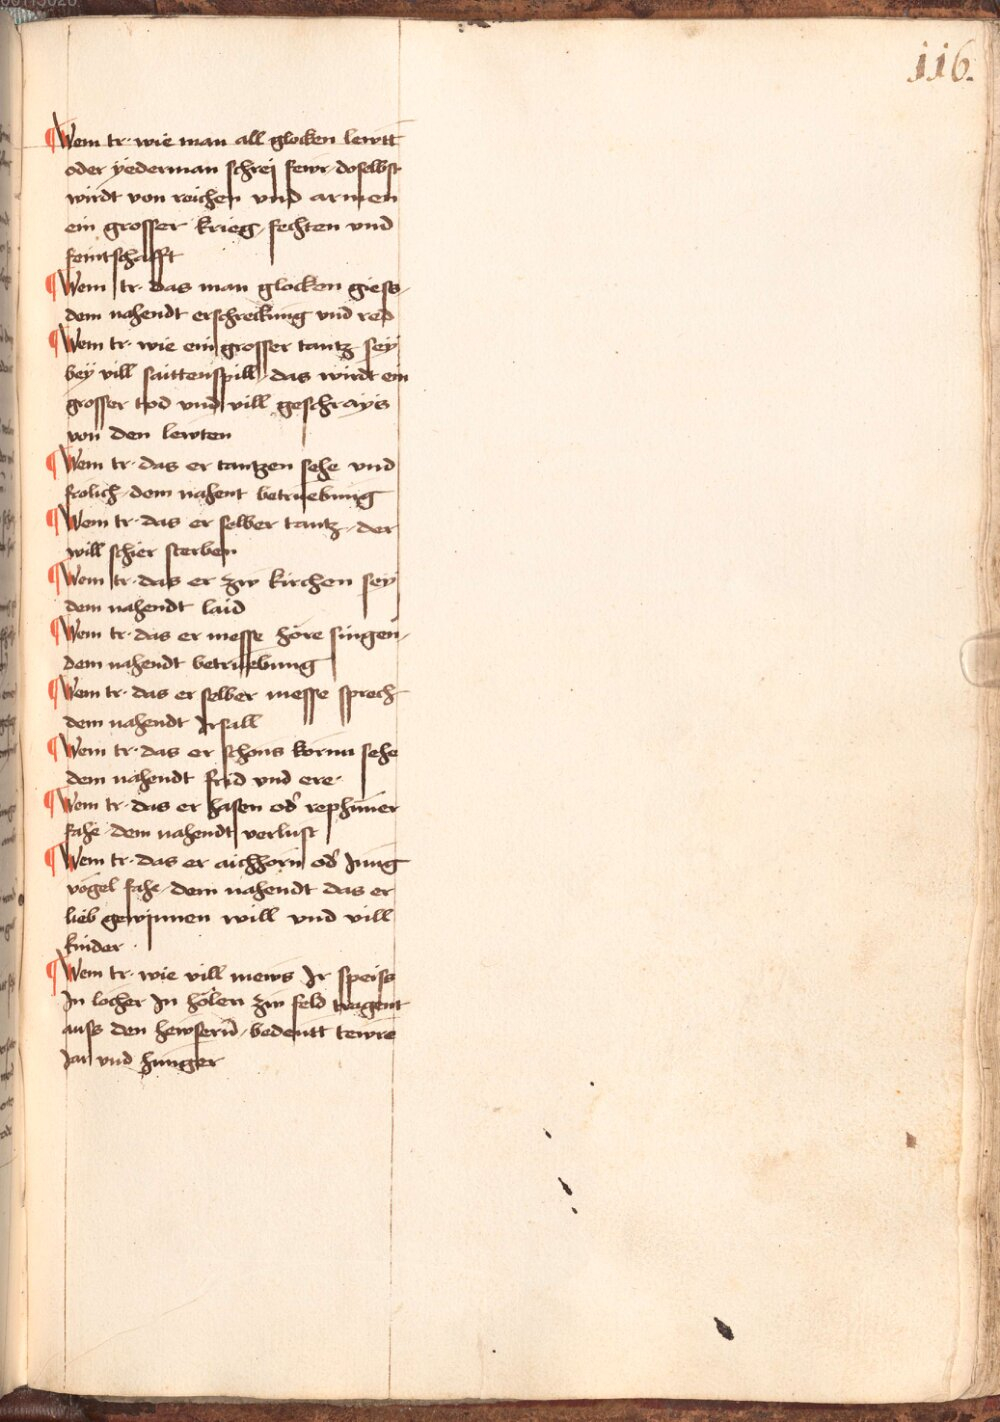 116.
¶ Wem tr· wie man all glocken lewtt
oder yederman schrej fewr· doselbst
wirdt von reichen vnd armen
ein grosser krieg, fechten vnd
feintschafft
¶ Wem tr· das man glocken giess,
dem nahendt erschreckung vnd red
¶ Wem tr· wie ein grosser tantz sey
bey vill saittenspill, das wirdt ein
grosser tod vnd vill geschrays
von den lewten
¶ Wem tr· das er tantzen sehe vnd
frolich, dem nahent betruebung
¶ Wem tr· das er selber tantz, der
will schier sterben
¶ Wem tr· das er zw kirchen sey
dem nahendt laid
¶ Wem tr· das er messe höre singen,
dem nahendt betruebung
¶ Wem tr· das er selber messe sprech
dem nahendt Irsall
¶ Wem tr· das er schons kornn sehe
dem nahendt frid vnd ere·
¶ Wem tr· das er hasen od' rephuner
fahe, dem nahendt verlust
¶ Wem tr· das er aichhorn od' Jung
vogel fahe, dem nahendt das er
lieb gewinnen will vnd vill
kinder ·
¶ Wem tr· wie vill mews Ir speiss
In locher In hölern zw feld tragent
auss den hewsern, bedeutt tewre
Jar vnd hunger